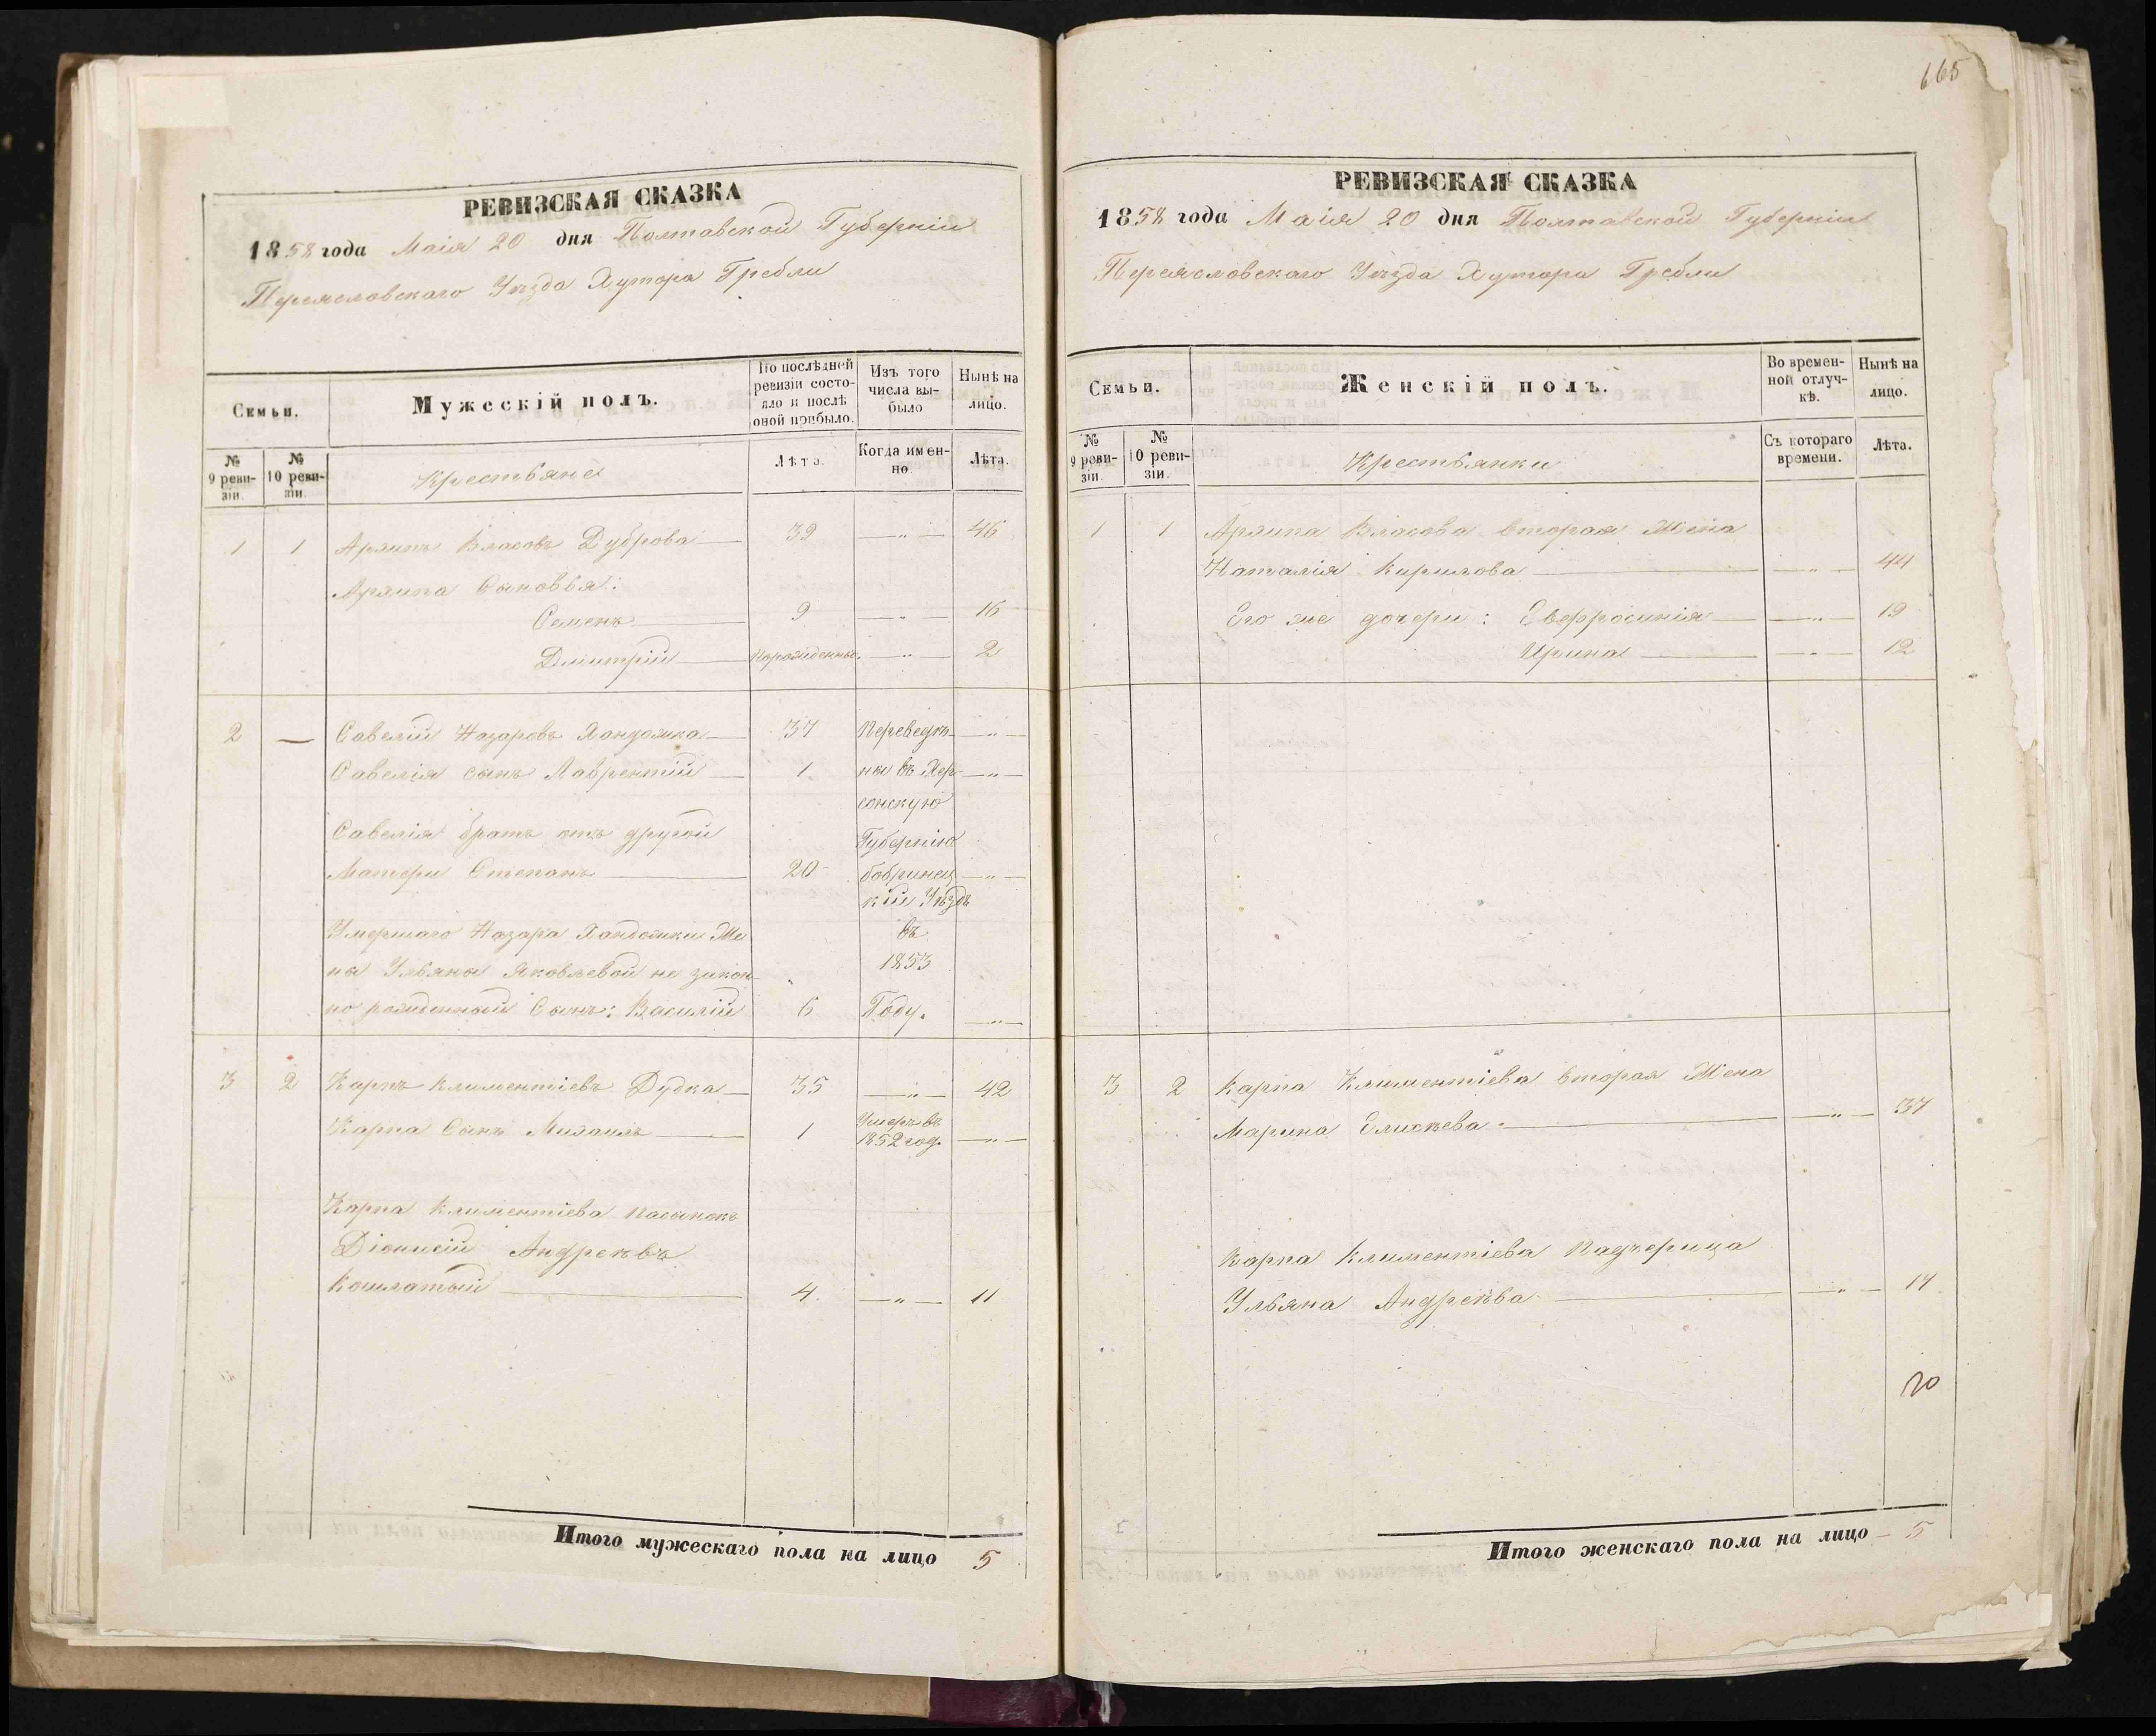 665
РЕВИЗСКАЯ СКАЗКА
1858 года Маія 20 дня Полтавской Губерніи
Переяславскаго Уѣзда Хутора Гребли
Семьи.
Мужескій полъ.
По послѣдней ревизіи состояло и послѣ оной прибыло.
Изъ того числа выбыло
Нынѣ на лицо.
№ 9 ревизіи.
№ 10 ревизіи.
Крестьяне
Лѣта.
Когда именно.
Лѣта.
1 1 Архипъ Власовъ Дуброва 39 — „ — 46
Архипа Сыновья:
Семенъ 9 — „ — 16
Дмитрій Новорожденный — „ — 2
2 — Савелій Назаровъ 37 Переведе- — „ —
Савелія сынъ Лаврентій 1 ны въ Хер- — „ —
сонскую
Савелія братъ отъ другой Губернію
Матери Степанъ 20 бобринец — „ —
кій Уѣздъ
Умершаго Назара Же въ
ны Ульяны Яковлевой не закон 1853
но рожденный Сынъ: Василій 6 Году. — „ —
3 2 Карпъ Климентіевъ Дудка 35 — „ — 42
Карпа Сынъ Михаилъ 1 Умеръ въ 1852 год. — „ —
Карпа Климентіева пасынокъ
Діонисій Андреевъ
Кошлатый 4 — „ — 11
Итого мужескаго пола на лицо 5
РЕВИЗСКАЯ СКАЗКА
1858 года Маія 20 дня Полтавской Губерніи
Переясловскаго Уѣзда Хутора Гребли
Семьи.
Женскій полъ.
Во временной отлучкѣ.
Нынѣ на лицо.
№ 9 ревизіи.
№ 10 ревизіи.
Крестьянки
Съ котораго времени.
Лѣта.
1 1 Архипа Власова вторая Жена
Наталія Кирилова — „ — 44
Его же дочери: Евфросинія — „ — 19
Ирина — „ — 12
3 2 Карпа Климентіева вторая Жена
Марина Елисѣева — „ — 37
Карпа Климентіева Падчерица
Ульяна Андреѣва — „ — 14
Итого женскаго пола на лицо — 5